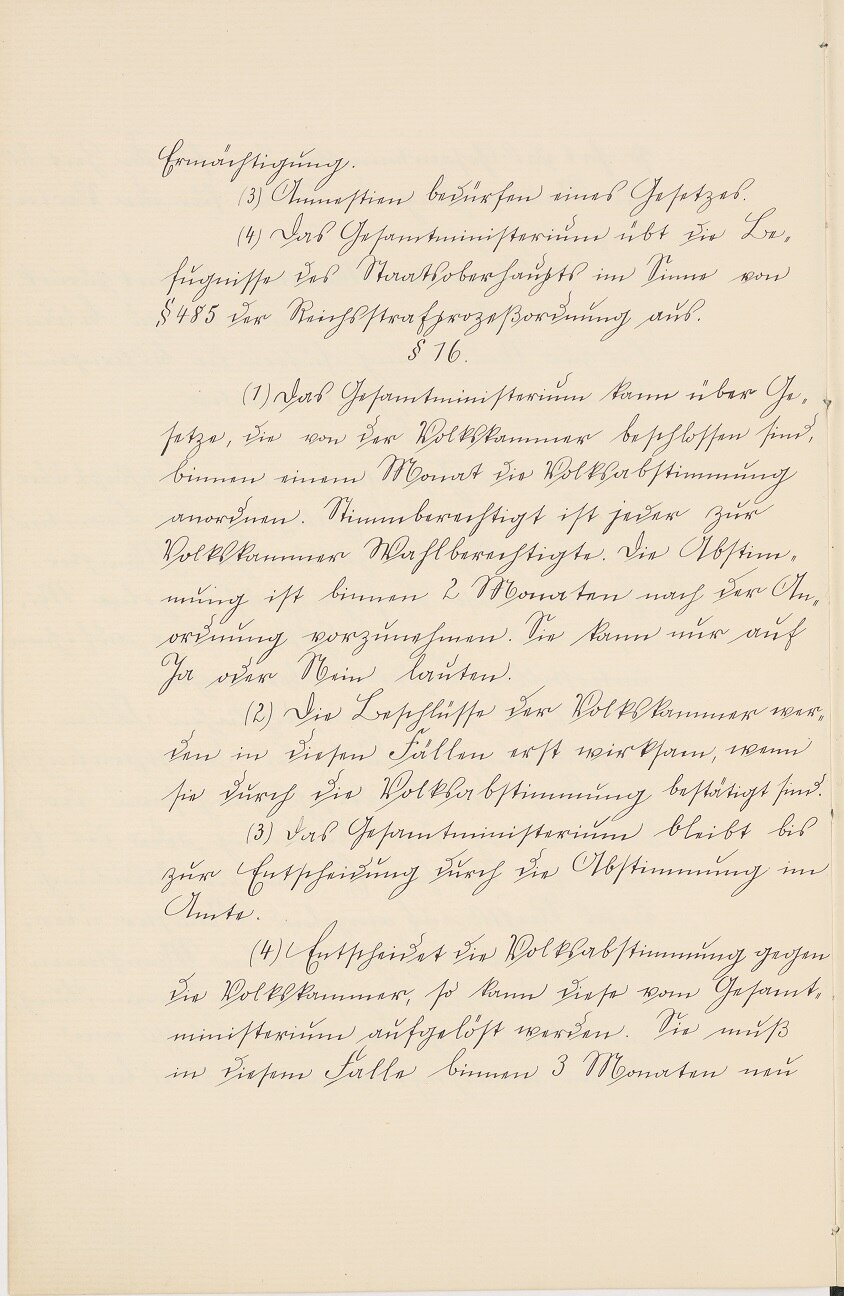 Ermächtigung.
(3) Amnestien bedürfen eines Gesetzes.
(4) Das Gesamtministerium übt die Be-
fugnisse des Staatsoberhaupts im Sinne von
§ 485 der Reichsstrafprozeßordnung aus.
§ 16.
(1) Das Gesamtministerium kann über Ge-
setze, die von der Volkskammer beschlossen sind,
binnen einem Monat die Volksabstimmung
anordnen. Stimmberechtigt ist jeder zur
Volkskammer Wahlberechtigte. Die Abstim-
mung ist binnen 2 Monaten nach der An-
ordnung vorzunehmen. Sie kann nur auf
Ja oder Nein lauten.
(2) Die Beschlüsse der Volkskammer wer-
den in diesen Fällen erst wirksam, wenn
sie durch die Volksabstimmung bestätigt sind.
(3) Das Gesamtministerium bleibt bis
zur Entscheidung durch die Abstimmung im
Amte.
(4) Entscheidet die Volksabstimmung gegen
die Volkskammer, so kann diese vom Gesamt-
ministerium aufgelöst werden. Sie muß
in diesem Falle binnen 3 Monaten neu